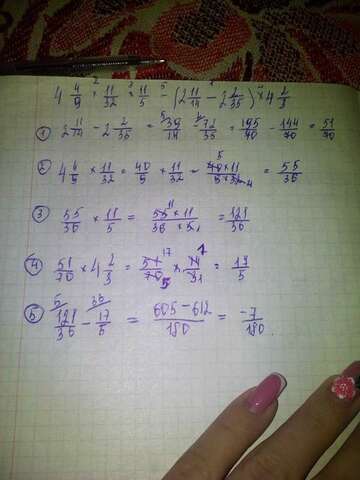 4 4/9 * 11/32 * 11/5 - (2 11/14 - 2 2/35) * 4 2/3
① 2 11/14 - 2 2/35 = 39/14 - 72/35 = 195/70 - 144/70 = 51/70
② 4 4/9 × 11/32 = 40/9 × 11/32 = 40×11/9×32 = 55/36
③ 55/36 × 11/5 = 55×11/36×5 = 121/36
④ 51/70 × 4 2/3 = 51/70 × 14/3 = 17/5
⑤ 121/36 - 17/5 = 605-612/180 = -7/180